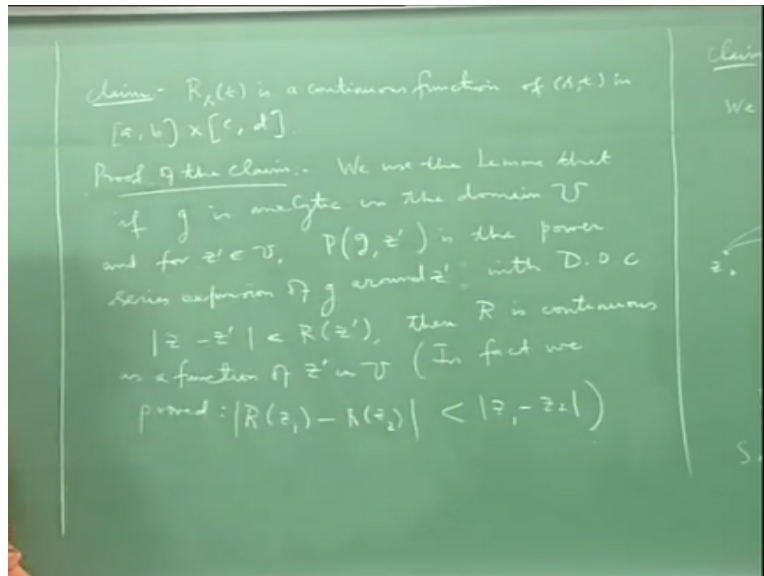 Claim:- R_s(t) is a continuous function of (s,t) in
[a, b] x [c, d].
Proof of the Claim:- We use the Lemma that
if g is analytic in the domain U
and for z' ∈ U, P(g, z') is the power
series expansion of g around z' with D.O.C
|z - z'| < R(z'), then R is continuous
as a function of z' in U (In fact we
proved: |R(z₁) - R(z₂)| < |z₁ - z₂|)
Claim
We
z₀
S